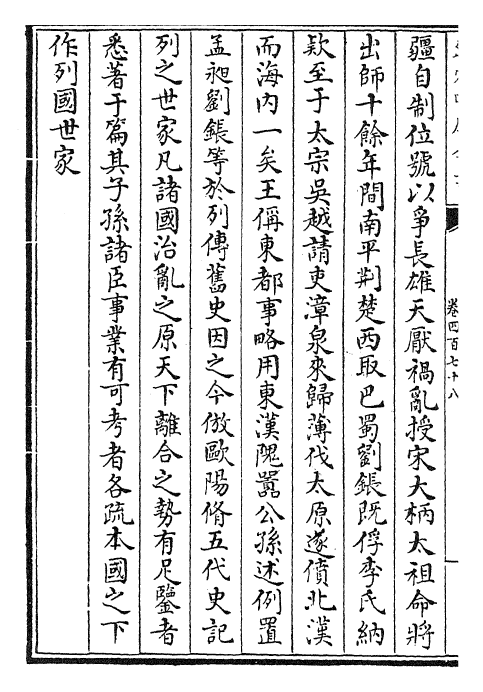 卷四百七十八
疆自制位號以爭長雄天厭禍亂授宋大柄太祖命將
出師十餘年間南平荆楚西取巴蜀劉鋹旣俘李氏納
欵至于太宗吳越請吏漳泉來歸薄伐太原遂僨北漢
而海内一矣王偁東都事略用東漢隗囂公孫述例置
孟昶劉鋹等於列傳舊史因之今倣歐陽脩五代史記
列之世家凡諸國治亂之原天下離合之勢有足鑒者
悉著于篇其子孫諸臣事業有可考者各疏本國之下
作列國世家